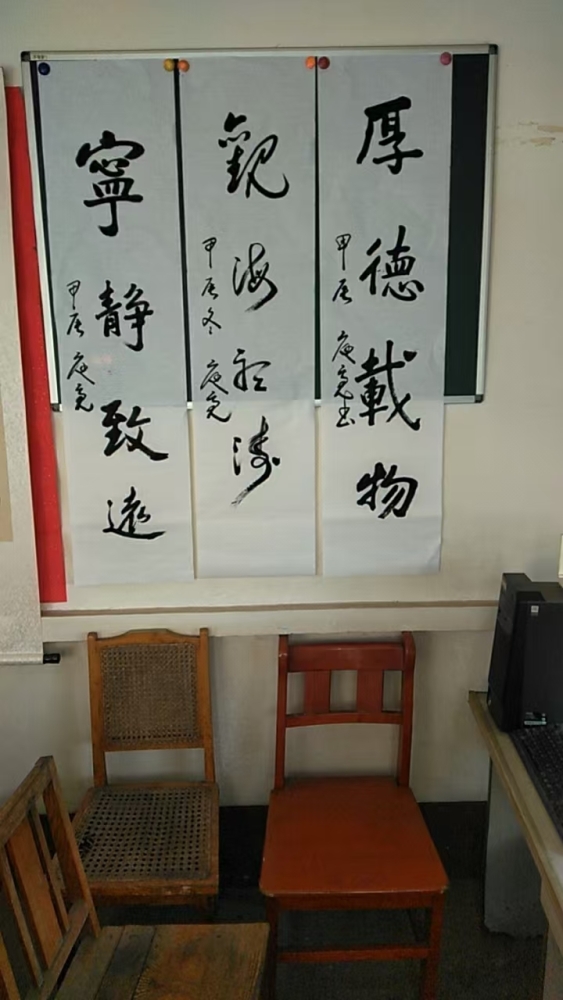 厚德載物
甲辰
觀海聽濤
甲辰冬
寧靜致遠
甲辰